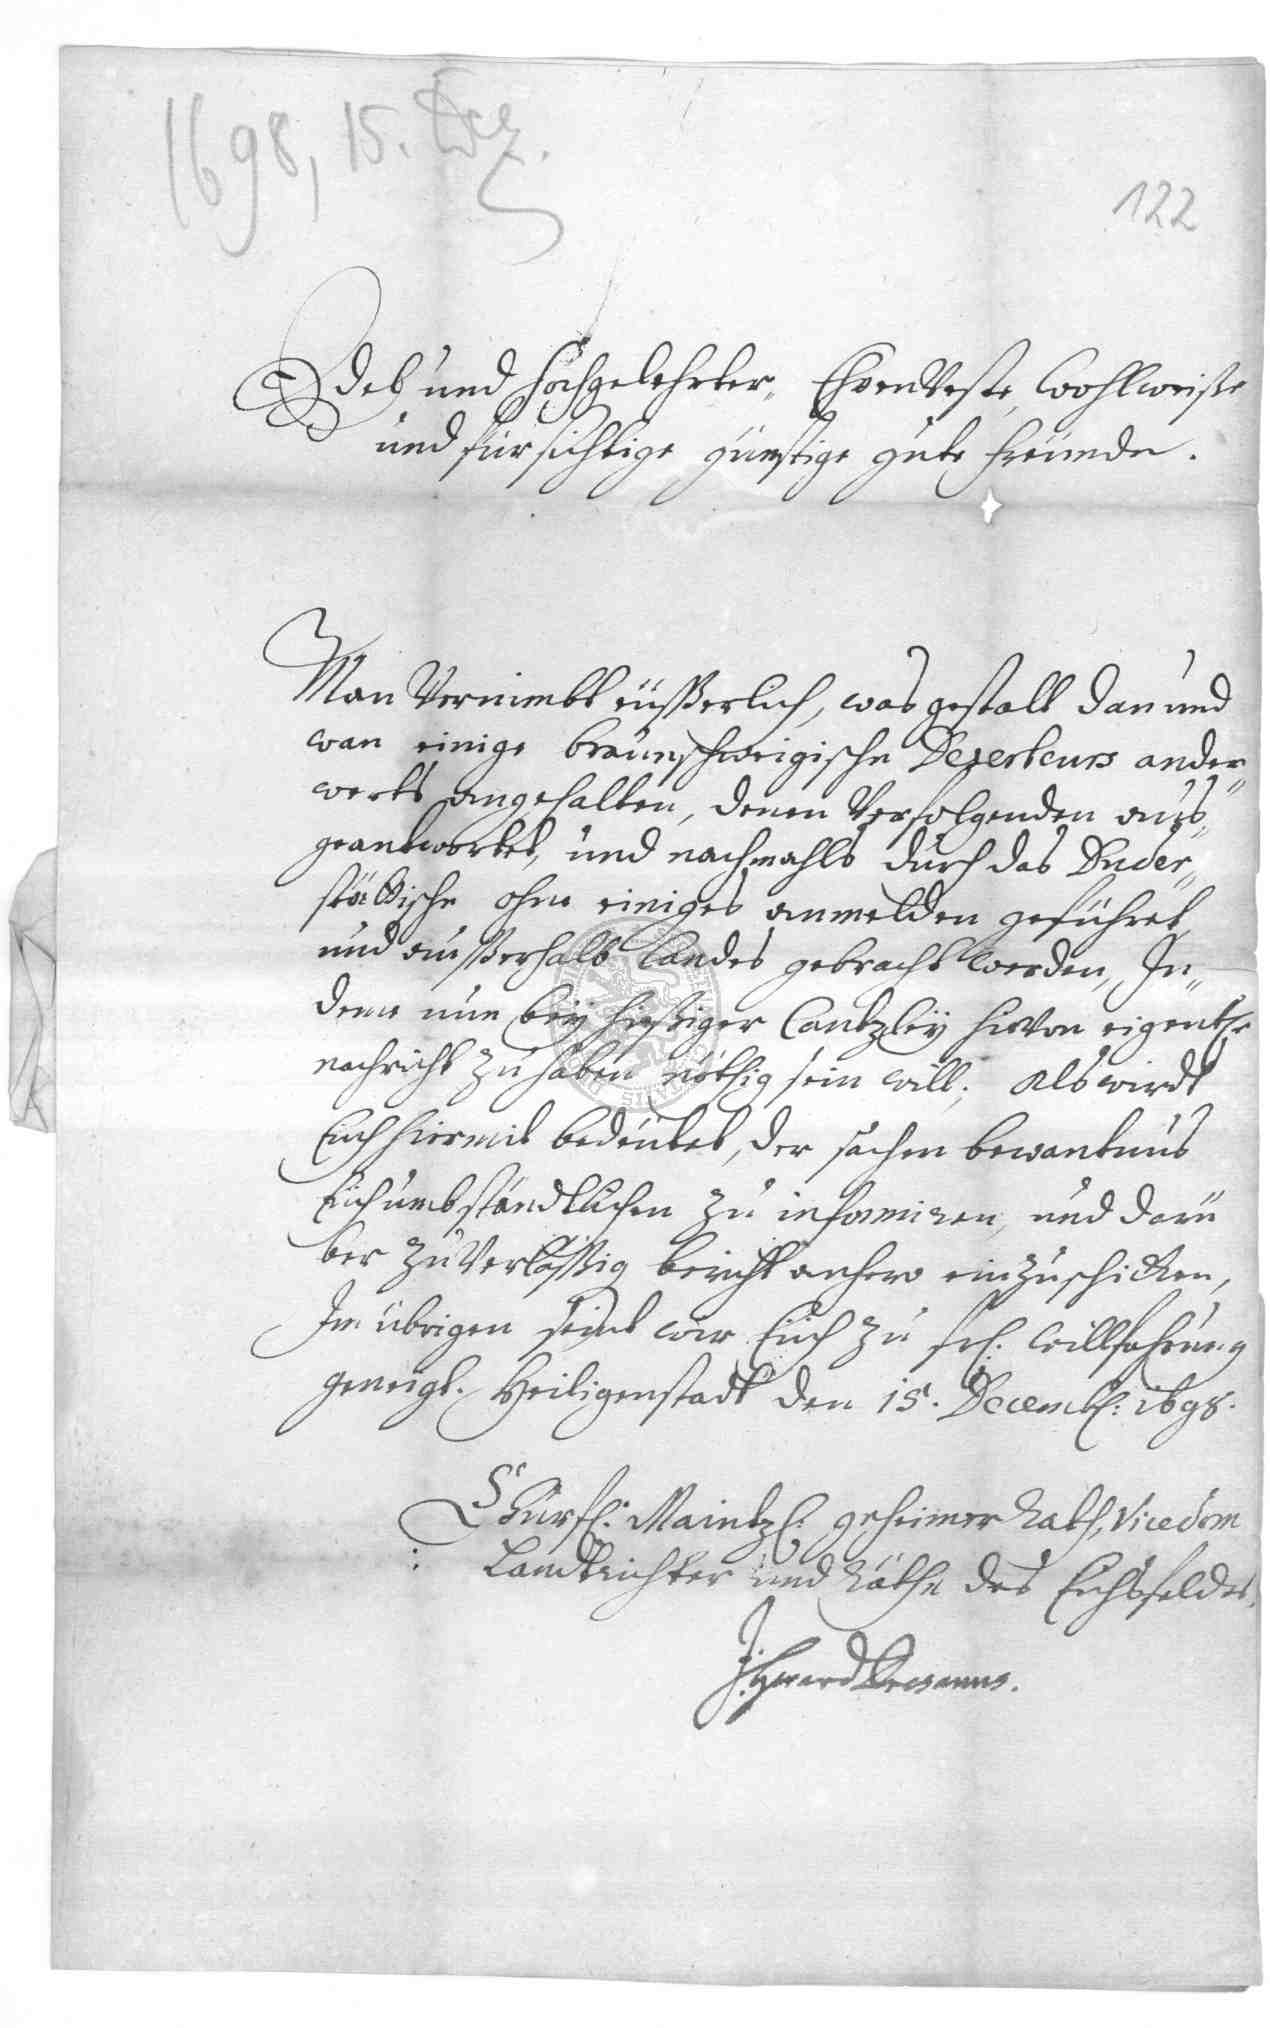 1698, 15. Dez.
122
Edel und Hochgelehrter, Ehrenveste, Wohlweise
und fürsichtige günstige gute Freunde.
Man Vernimbt eüßerlich, was gestalt dan und
wan einige braunschweigische Deserteurs ander„
werts angehalten, denen Verfolgenden aus„
geantwortet, und nachmahls durch das Duder„
stättische ohne einiges anmelden geführet,
und außerhalb Landes gebracht werden, In„
deme nun beÿ hießiger Cantzleÿ hirvon eigentl.
nachricht zu haben nöthig sein will; Als wirdt
Euch hiermit bedeutet, der sachen bewantnus
Euch umbständtlichen zu informiren, und darü
ber zuverläßig bericht anhero einzuschicken,
Im übrigen seint wir Euch zu frl. Willfahrung
geneigt. Heiligenstadt den 15. Decemb: 1698.
Churfl. Maintzl. geheimer Rath, Vicedom
Landtrichter und Räthe des Eichsfeldes,